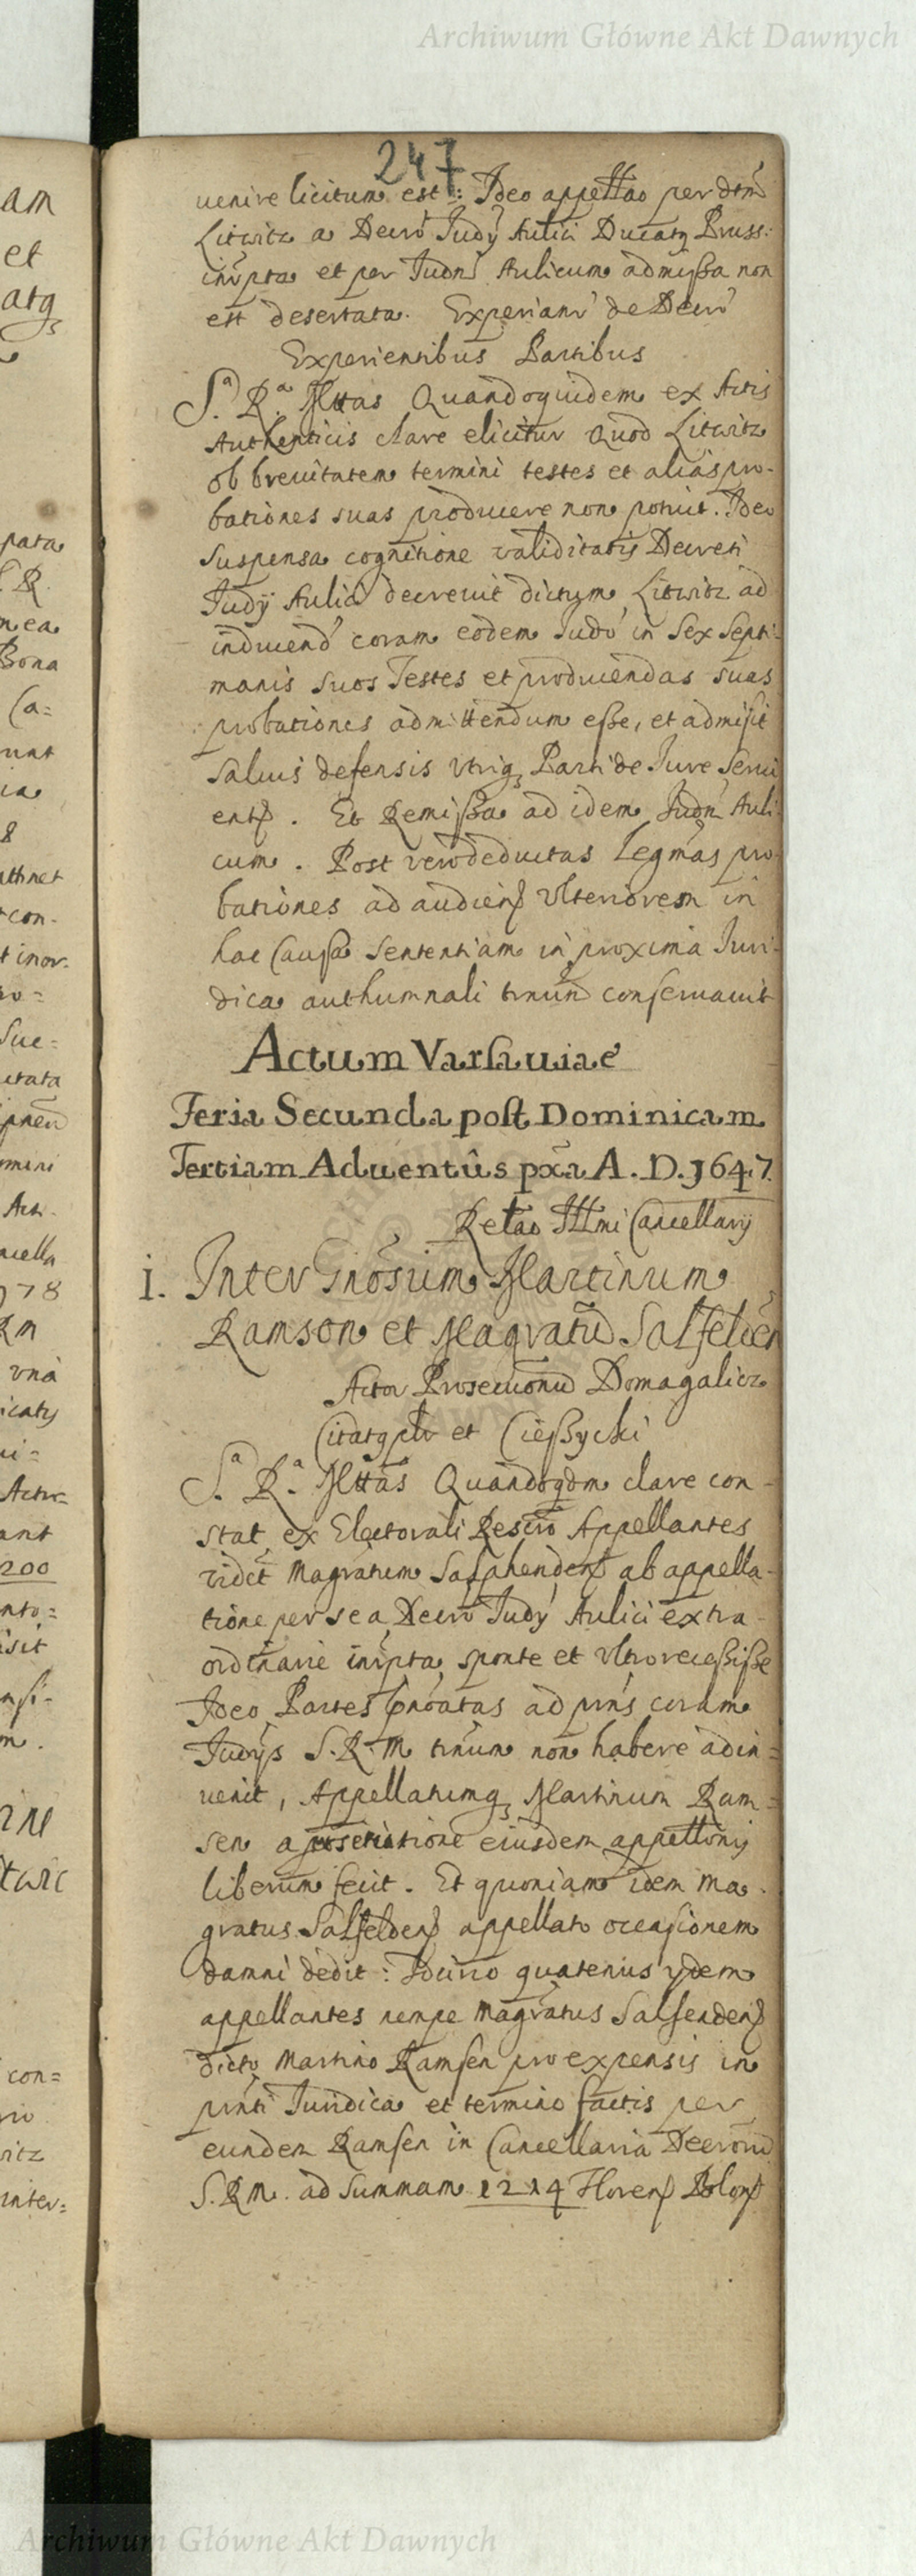 Archiwum Główne Akt Dawnych
247
am
et
atq
pata
R
mea
Bona
(a=
unt
ia
8
athnet
con-
t inor-
Sue=
utata
mini
Act.
ncella
78
Rm
vna
icatq
ui=
Actor
ant
200
isit
nsi-
m.
twic
con=
ritz
inter=
uenire licitum est: Ideo appellao per dtm
Litwitz a Decro Judÿ Aulici Ducatq Pruss:
inrpta et per Judm Aulicum admissa non
est desertata. Experianr de Decro
Experientibus Partibus
S.a R.a Mttas Quandoquidem ex Actis
Authenticis clare elicitur Quod Litwitz
ob breuitatem termini testes et alias pro-
bationes suas producere non potuit. Ideo
suspensa cognitione validitatis Decreti
Judÿ Aulici decreuit dictum Litwitz ad
inducend coram eodem Judo in sex septi-
manis suos Testes et producendas suas
probationes admittendum esse, et admisit
saluis defensis vtriq Parti de Jure serui
ents. Et Remissa ad idem Judm Auli-
cum. Post vero deductas Legmas pro
bationes ad audiens vlteriorem in
hac Causa sententiam in proxima Juri-
dica authumnali tmum conseruauit
Actum Varsauiae
Feria Secunda post Dominicam
Tertiam Aduentûs pxa A.D. 1647.
Relao Illmi Cancellarÿ
1. Inter Gnosum Martinum
Ramson et Magratu Salfelden
Actor Prosecuonu Domagalicz
Citatq plr et Ciessycki
S.a R.a Mttas Quandoqdm clare con-
stat ex Electorali Rescro Appellantes
videt Magratum Salphendens ab appella-
tione per se a Decro Judÿ Aulici extra-
ordinarie inrpta sponte et vltro recessisse
Ideo Partes pnoatas ad prns coram
Judÿs S.R.M tmum non habere adin=
uenit, Appellatumq Martinum Ram=
sen a prosecutione eiusdem appellonis
liberum fecit. Et quoniam idem Ma-
gratus Salfeldens appellato occasionem
damni dedit: Idcirco quatenus ÿdem
appellantes nempe Magratus Salfendens
dicto Martino Ramsen pro expensis in
prnti Juridica et termino factis per
eundem Ramsen in Cancellaria Decroru
S.R.M. ad summam 1214 Florens Polons
Archiwum Główne Akt Dawnych